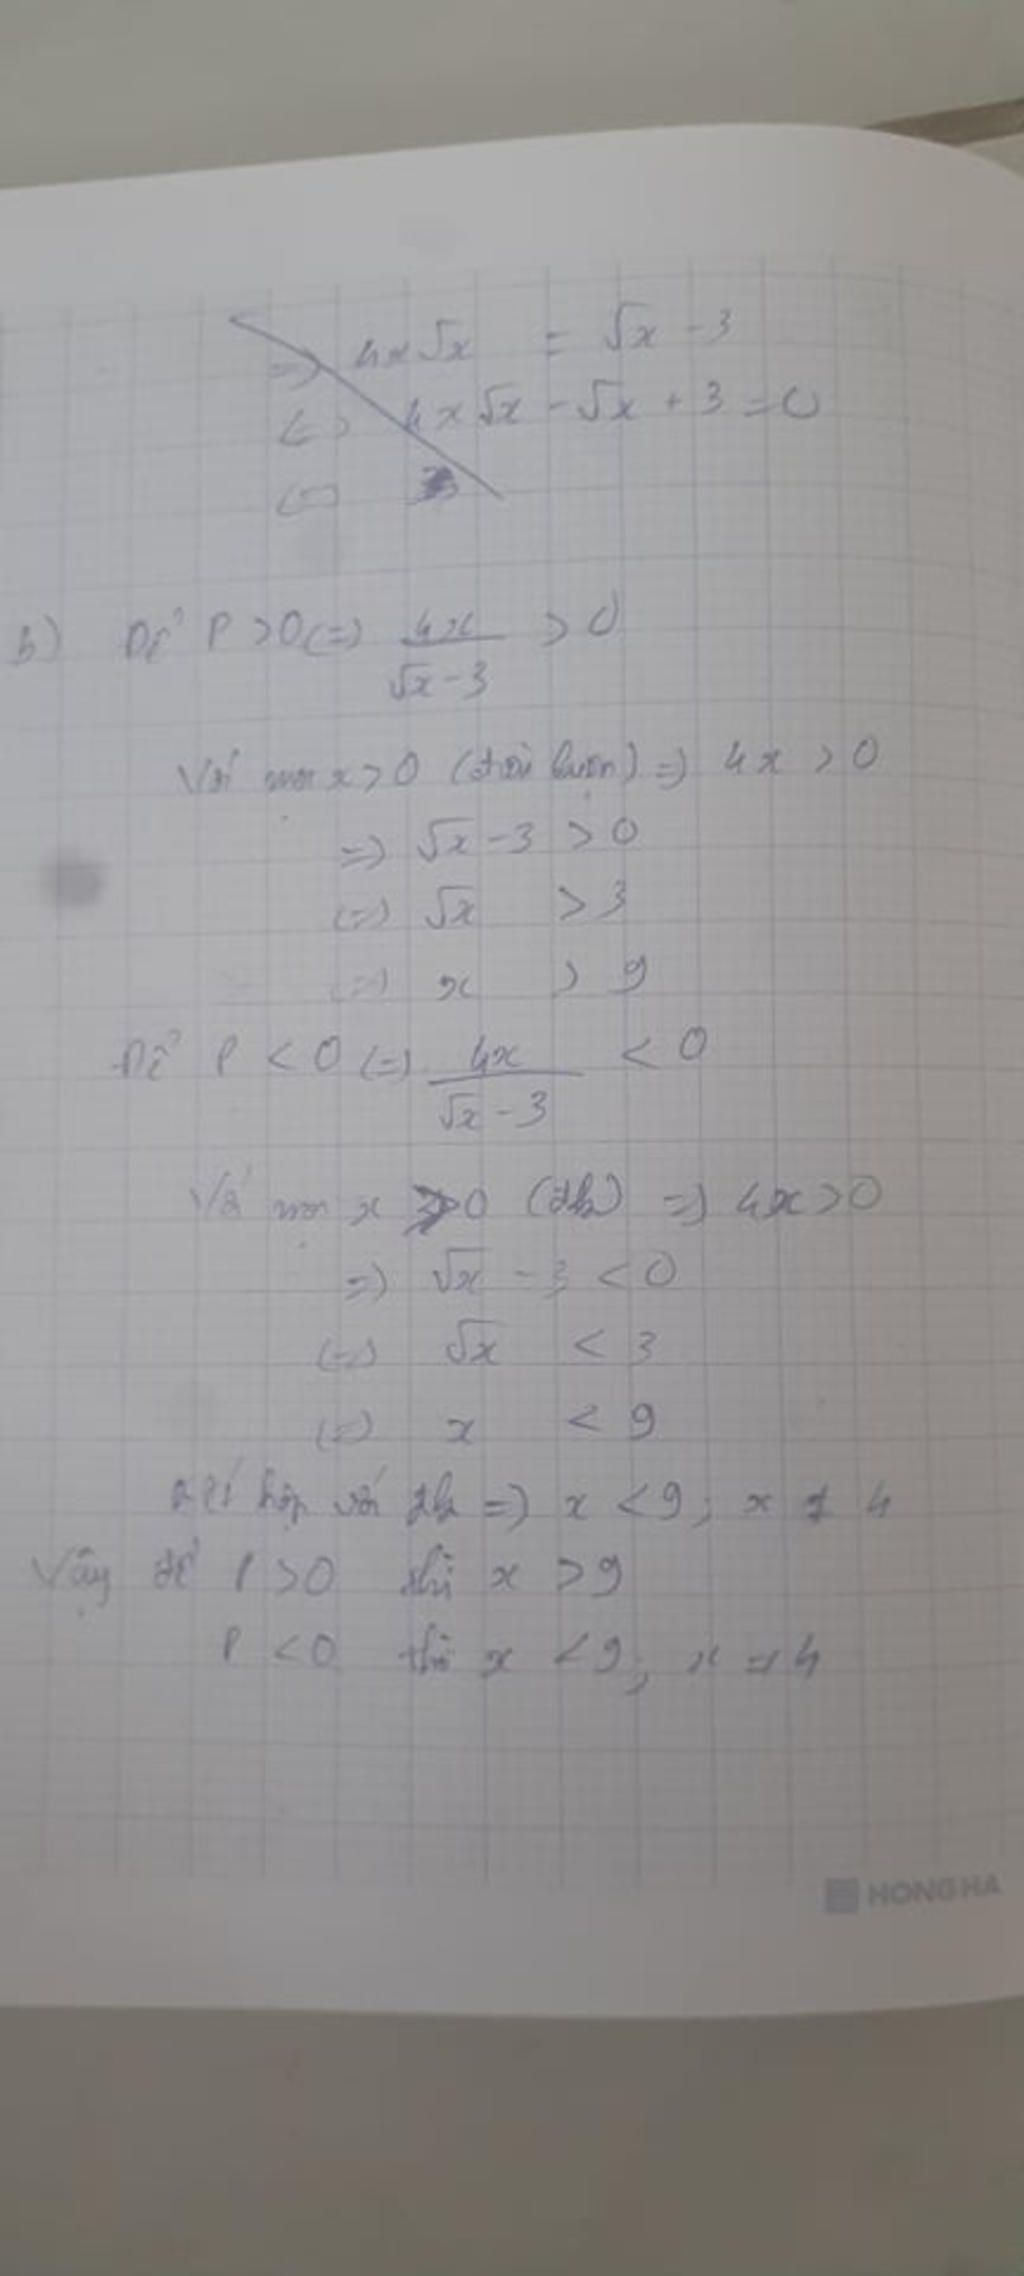 => 4x√x = √x - 3
<=> 4x√x - √x + 3 = 0
<=>
b) Để P > 0 <=> 4x / (√x - 3) > 0
Với mọi x > 0 (điều kiện) => 4x > 0
=> √x - 3 > 0
<=> √x > 3
<=> x > 9
Để P < 0 <=> 4x / (√x - 3) < 0
Với mọi x > 0 (đk) => 4x > 0
=> √x - 3 < 0
<=> √x < 3
<=> x < 9
Kết hợp với đk => x < 9; x ≠ 4
Vậy để P > 0 thì x > 9
P < 0 thì x < 9; x ≠ 4
HONG HA